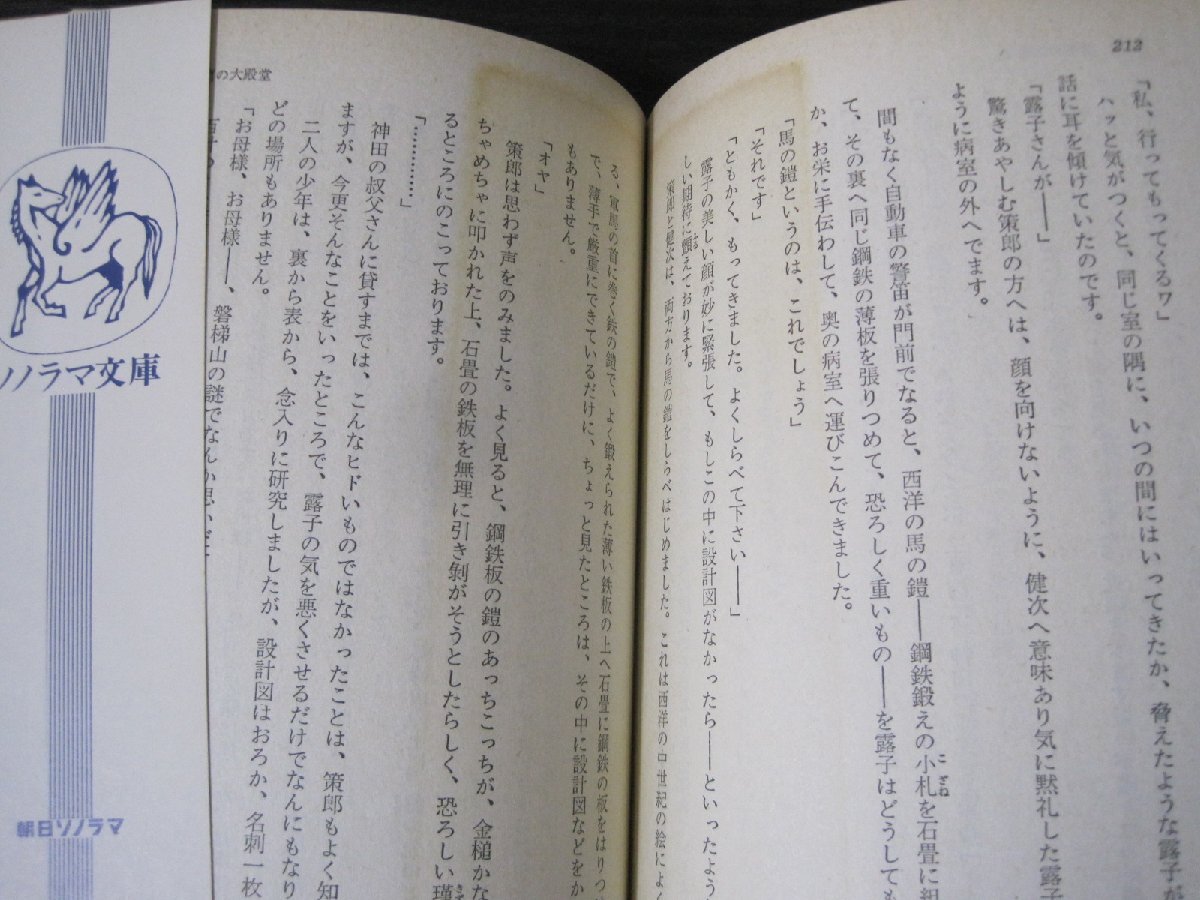 212
「私、行ってもってくるワ」
ハッと気がつくと、同じ室の隅に、いつの間にはいってきたか、脅えたような露子が
話に耳を傾けていたのです。
「露子さんが――」
驚きあやしむ策郎の方へは、顔を向けないように、健次へ意味あり気に黙礼した露子
ように病室の外へでます。
間もなく自動車の警笛が門前でなると、西洋の馬の鎧――鋼鉄鍛えの小札を石畳に組
こざね
て、その裏へ同じ鋼鉄の薄板を張りつめて、恐ろしく重いもの――を露子はどうしても
か、お栄に手伝わして、奥の病室へ運びこんできました。
「馬の鎧というのは、これでしょう」
「それです」
「ともかく、もってきました。よくしらべて下さい――」
露子の美しい顔が妙に緊張して、もしこの中に設計図がなかったら――といったよう
しい期待に顫えております。
策郎と健次は、両方から馬の鎧をしらべはじめました。これは西洋の中世紀の絵によく
の大殿堂
る、軍馬の首に巻く鉄の鎧で、よく鍛えられた薄い鉄板の上へ石畳に鋼鉄の板をはりつ
で、薄手で厳重にできているだけに、ちょっと見たところは、その中に設計図などをか
もありません。
「オヤ」
策郎は思わず声をのみました。よく見ると、鋼鉄板の鎧のあっちこっちが、金槌かな
ちゃめちゃに叩かれた上、石畳の鉄板を無理に引き剝がそうとしたらしく、恐ろしい瑾
るところにのこっております。
「…………」
神田の叔父さんに貸すまでは、こんなヒドいものではなかったことは、策郎もよく知
ますが、今更そんなことをいったところで、露子の気を悪くさせるだけでなんにもなり
二人の少年は、裏から表から、念入りに研究しましたが、設計図はおろか、名刺一枚
どの場所もありません。
「お母様、お母様――、磐梯山の謎でなんか思いだ
ソノラマ文庫
朝日ソノラマ